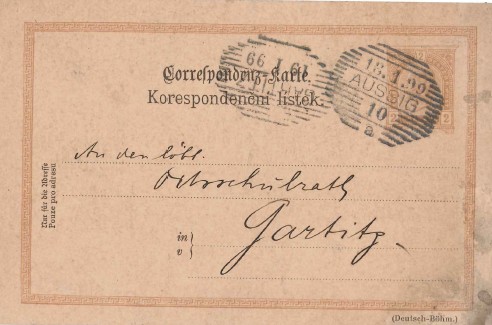 Correspondenz-Karte.
Korespondenční lístek.
18.1.99
AUSSIG
10
a
19 1 99
GARTITZ
2
Nur für die Adresse
Pouze pro adresu
An den löbl.
Ortsschulrath
in
v
Gartitz
(Deutsch-Böhm.)